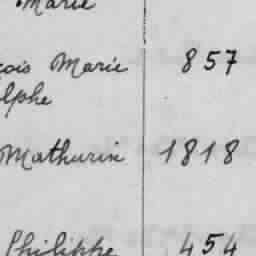 Marie
çois Marie 857
lphe
Mathurin 1818
Philippe 454